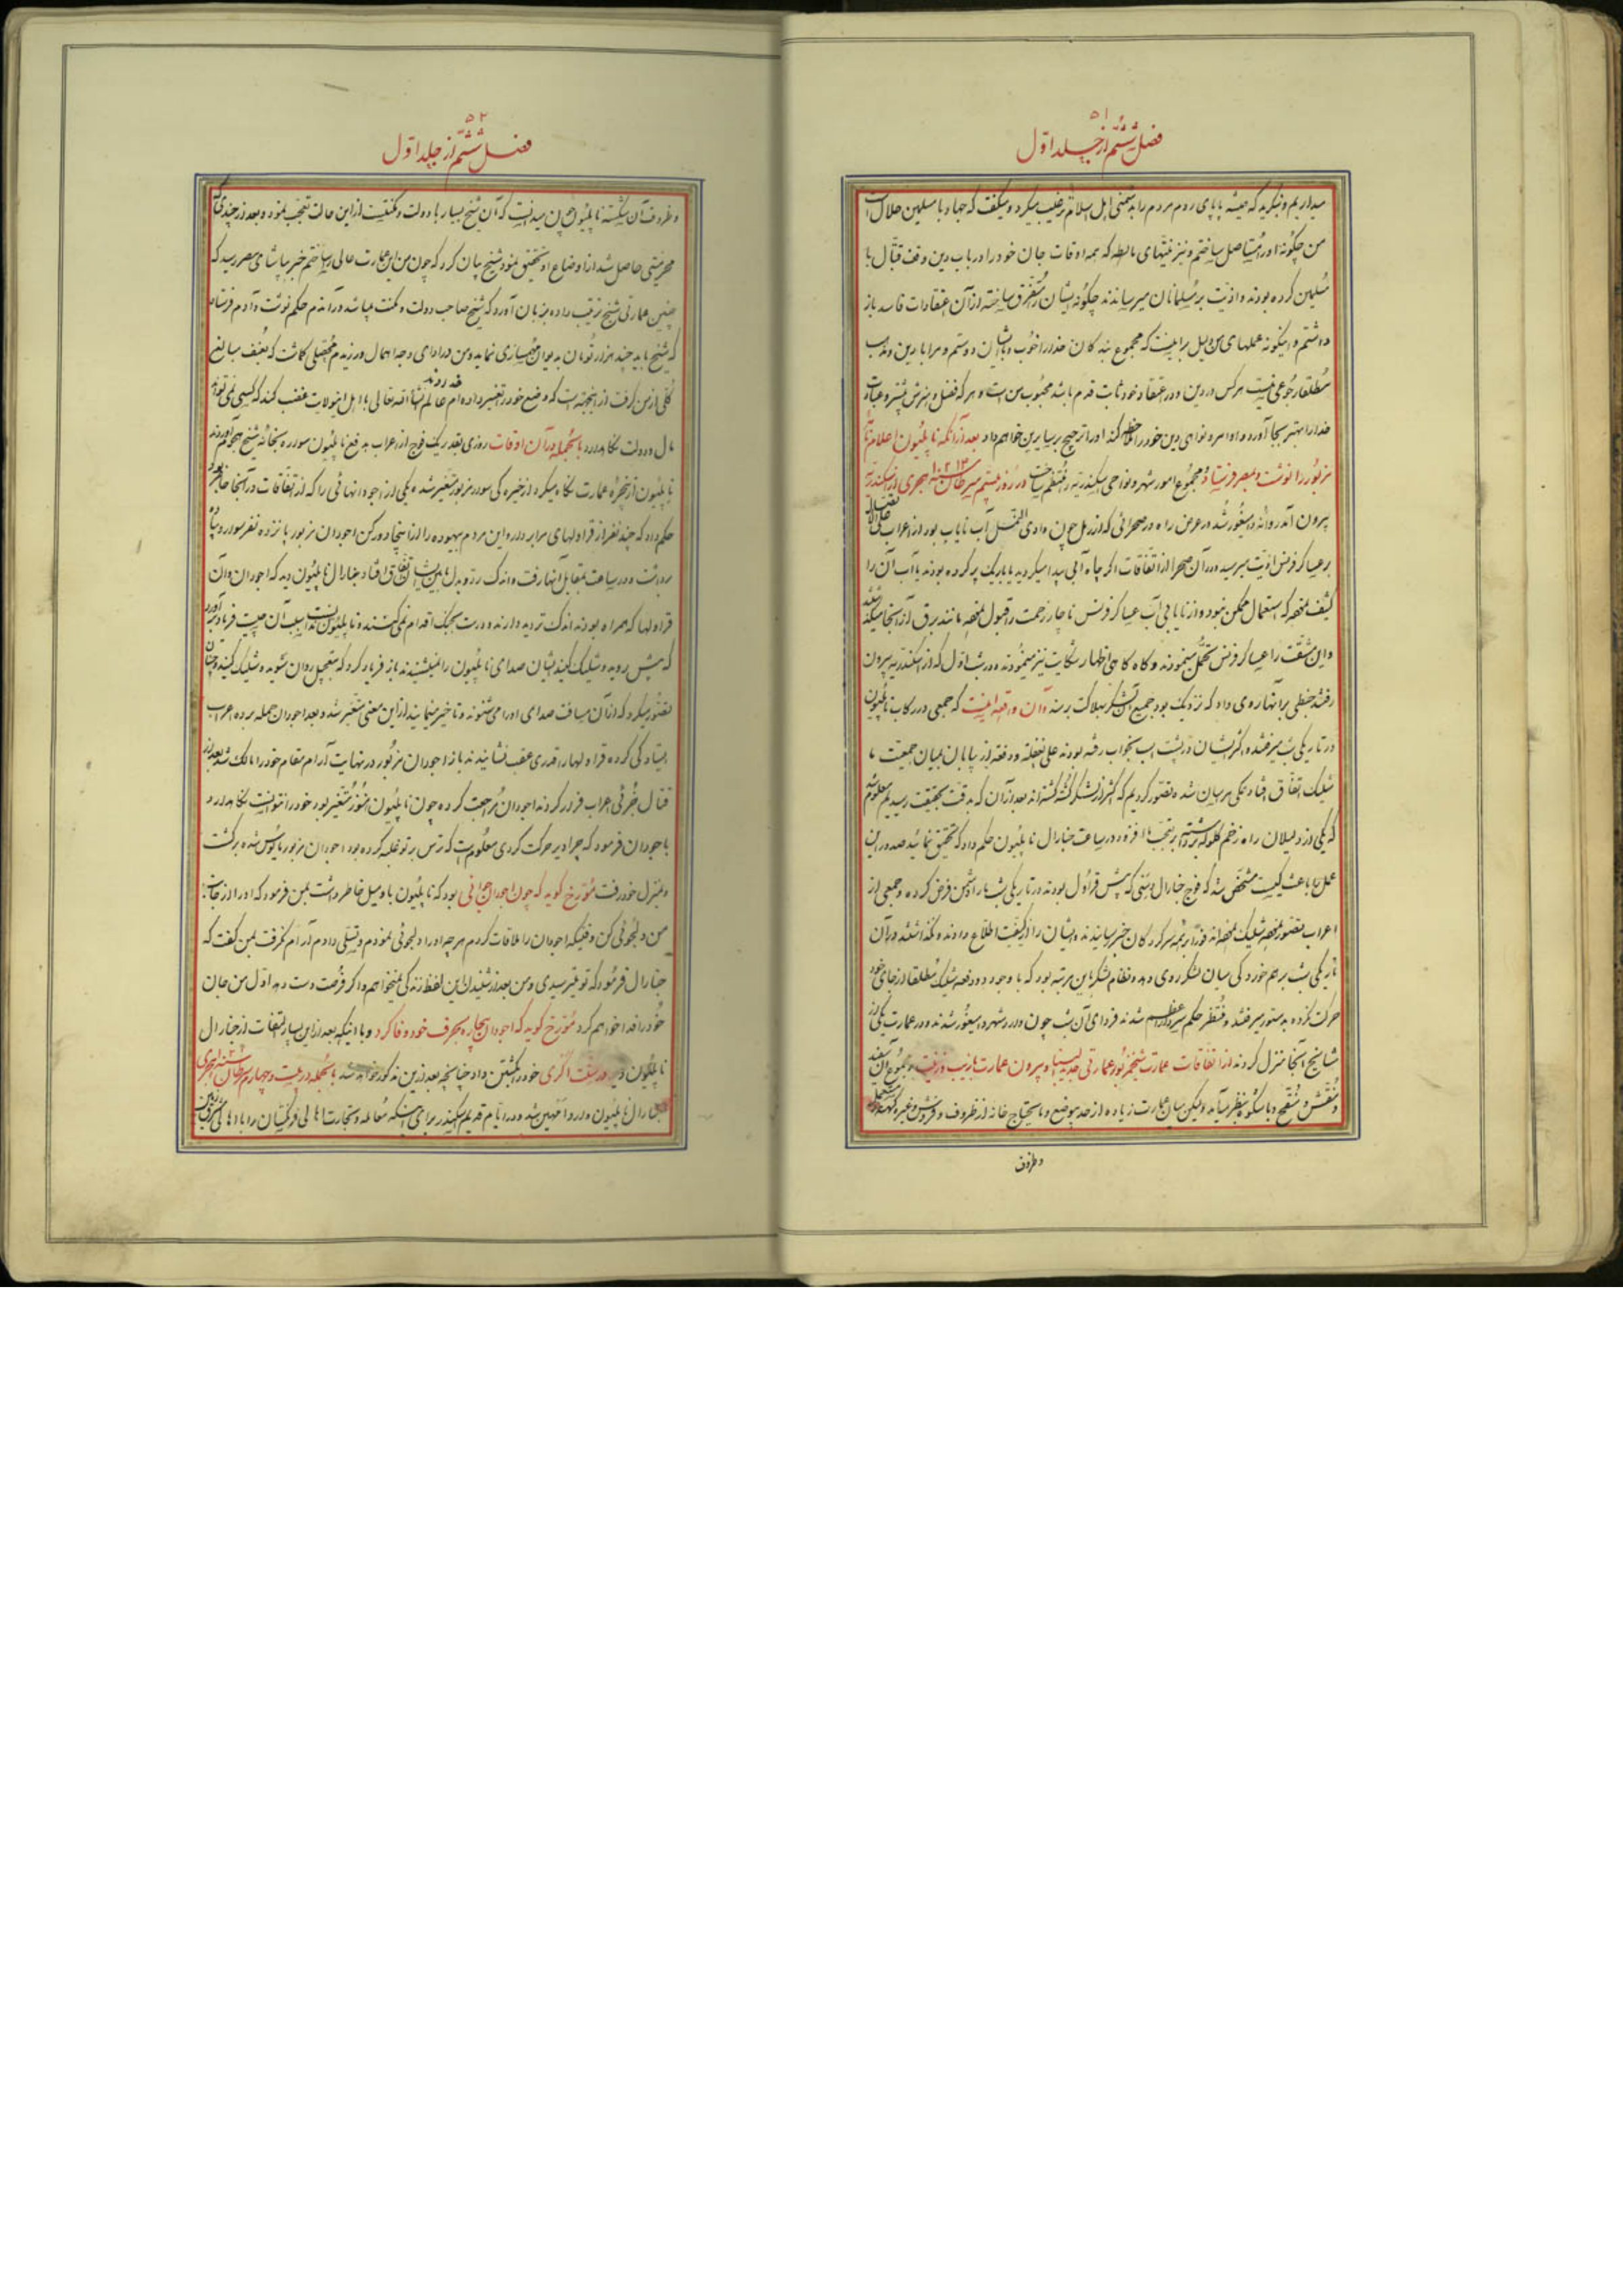 ۵۱
فصل ششم از جلد اول
میداریم و بنگرید که همیشه پاپای روم مردم را بدشمنی اهل اسلام ترغیب میکرد و میگفت که جهاد با مسلمین حلال است
من چگونه او را مستاصل ساختم و نیز نیتهای مالطه که همه اوقات جان خود را در باب دین وقف قتال با
مسلمین کرده بودند و اذیت بر مسلمانان میرساندند چگونه ایشان را متفرق ساخته از آن اعتقادات فاسد باز
داشتم و اینگونه عملهای من دلیل براینست که مجموع بندگان خدا را خوب و یکسان دوستم و مرا با دین و مذهب
مطلقا رجوعی نیست هر کس در دین و در اعتقاد خود ثابت قدم باشد محبوب من است و هر که فضل و هنرش بیشتر و عبادت
خدا را بهتر بجا آورد و اوامر و نواهی دین خود را ملاحظه کند او را ترجیح بر سایرین خواهم داد بعد از آنکه ناپلیون اعلام نامه
مزبور را نوشت و بمصر فرستاد و مجموع امور شهر و نواحی اسکندریه را منتظم ساخت در روز بیستم سرطان سنه ۱۲۱۳ هجری از اسکندریه
بیرون آمده روانه دمنهور شد در عرض راه در صحرائی که از رمل چون وادی النمل آب نایاب بود از اعراب
بر عساکر فرنس اذیت میرسید و در آن صحرا از اتفاقات اگر چاه آبی پیدا میکردید یا با ریک پر کرده بودند یا آب آن را
کثیف بنحوی که استعمال ممکن نبود و از نایابی آب عساکر فرنس ناچار زحمت را قبول نموده مانند برق از آنجا میگذشتند
و این مشقت را عساکر فرنس تحمل مینمودند و گاه گاهی اظهار شکایت نیز مینمودند و در شب اول که از اسکندریه بیرون
رفتند خبطی بر آنها روی داد که نزدیک بود جمیع آن لشکر بهلاکت برسند و آن واقعه اینست که جمعی در رکاب ناپلیون
در تاریکی شب میرفتند و اکثر ایشان در پشت اسب بخواب رفته بودند علی الغفله و دفعة از بیابان بمیان جمعیت ما
شلیک اتفاق افتاد همگی هراسان شده و تصور کردیم که اکثر از لشکر ما کشته گشته اند بعد از آن که بدقت بحقیقت رسیدیم معلوم شد
که یکی از دلیلان راه زخم گلوله برداشته بر تعجب ما افزود در ساعت جنارال ناپلیون حکم داد که تحقیق نمائید صدور این
عمل باعث کیست مشخص شد که فوج جنارال دسنی که پیش قراول بودند در تاریکی شب ما را دشمن فرض کرده و جمعی از
اعراب تصور نموده شلیک نموده اند فورا بهمه سرکردگان خبر رسانیدند و ایشان را از کیفیت اطلاع دادند و نگذاشتند در آن
تاریکی شب برهم خوردگی میان لشکر روی دهد و نظام لشکر باین مرتبه بود که با وجود دو دفعه شلیک مطلقا از جای خود
حرکت نکرده بدستور میرفتند و منتظر حکم سردار اعظم شدند فردای آن شب چون وارد شهر دمنهور شدند و در عمارت یکی از
مشایخ آنجا منزل کردند از اتفاقات عمارت شیخ مزبور عمارتی جدید البنا و بیرون عمارت با زیب و زینت و مجموع آن سفید
و منقش و منقح و باشکوه بنظر میآمد ولیکن میان عمارت زیاده از حد بیوضع و مایحتاج خانه از ظروف و فروش و غیره کهنه
و ظروف
۵۲
فصل ششم از جلد اول
و ظروف آن شکسته ناپلیون چون میدانست که آن شیخ بسیار با دولت و مکنتست از این حالت تعجب نموده بعد از چندی که
محرمیتی حاصل شد از اوضاع او تحقیق نمود شیخ بیان کرد که چون من این عمارت عالی را ساختم خبر بپاشای مصر رسید که
چنین عمارتی شیخ ترتیب داده بزبان آورد که شیخ صاحب دولت و مکنت میباشد در آندم حکم نوشت و آدم فرستاد
که شیخ باید چند هزار تومان بدیوان مهمسازی نماید و من در ادای وجه اهمال ورزیدم محصلی گماشت که بعنف مبالغ
کلی از من گرفت از اینجهة است که وضع خود را تغییر داده ام خداوند عالم انشاء الله تعالی باهل این ولایت غضب کند که کسی نمیتواند
مال و دولت نگاهدارد بالجمله در آن اوقات روزی بقدر یک فوج از اعراب بدفع ناپلیون سواره بخانه شیخ هجوم آوردند
ناپلیون از پنجره عمارت نگاه میکرد از خیره گی سوار مزبور متغیر شد و یکی از اجودانهائی را که از اتفاقات در آنجا حاضر بود
حکم داد که چند نفر از قراولهای مرا بردار و این مردم بیهوده را از اینجا دور کن اجودان مزبور پانزده نفر سوار و پیاده
برداشت و در ساعت بمقابل آنها رفت و اندک زد و بدل مابین ایشان اتفاق افتاد جنارال ناپلیون دید که اجودان و آن
قراولها که همراه بودند اندک تردید دارند و درست بجنگ اقدام نمیکنند و ناپلیون ندانست سبب آن چیست فریاد برآورد
که پیش بروید و شلیک کنید ایشان صدای ناپلیون را نشنیدند باز فریاد کرد که بتعجیل روان شوید و شلیک کنید و چنان
تصور میکرد که از آن مسافت صدای او را میشنوند و تاخیر مینمایند از این معنی متغیر شد و بعد اجودان حمله برده اعراب
ایستادگی کرده قراولها را قدری عقب نشانیدند باز اجودان مزبور در نهایت آرام مقام خود را مالک شد بعد از
قتال جزئی اعراب فرار کردند اجودان مراجعت کرده چون ناپلیون هنوز متغیر بود خود را نتوانست نگاهدارد
باجودان فرمود که چرا دیر حرکت کردی معلومست که ترس بر تو غلبه کرده بود اجودان مزبور مایوس شده برگشت
و بمنزل خود رفت مورخ گوید که چون اجودان جوانی بود که ناپلیون باو میل خاطر داشت بمن فرمود که او را از جانب
من دلجوئی کن وقتیکه اجودان را ملاقات کردم هر چه او را دلجوئی نمودم و تسلی دادم آرام نگرفت بمن گفت که
جنارال فرمود که تو میترسیدی و من بعد از شنیدن این لفظ زندگی نمیخواهم و اگر فرصت دست دهد اول من جان
خود را فدا خواهم کرد مورخ گوید که اجودان بیچاره بحرف خود وفا کرد و با اینکه بعد از این بسیار التفات از جنارال
ناپلیون دید خود را بکشتن داد چنانچه بعد از این مذکور خواهد شد بالجمله در بیست و چهارم سرطان
جنارال ناپلیون وارد رحمانیه شد و در ایام قدیم اسکندر برای اینکه معامله و تجارت اهالی فرنگستان را با اهالی